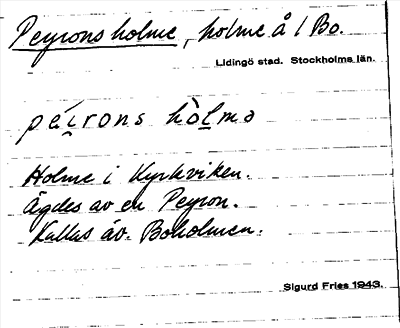 Peyrons holme, holme å 1 Bo.
Lidingö stad. Stockholms län.
péi̯rons hòl̠mə
Holme i Kyrkviken.
Ägdes av en Peyron.
Kallas äv. Boholmen.
Sigurd Fries 1943.